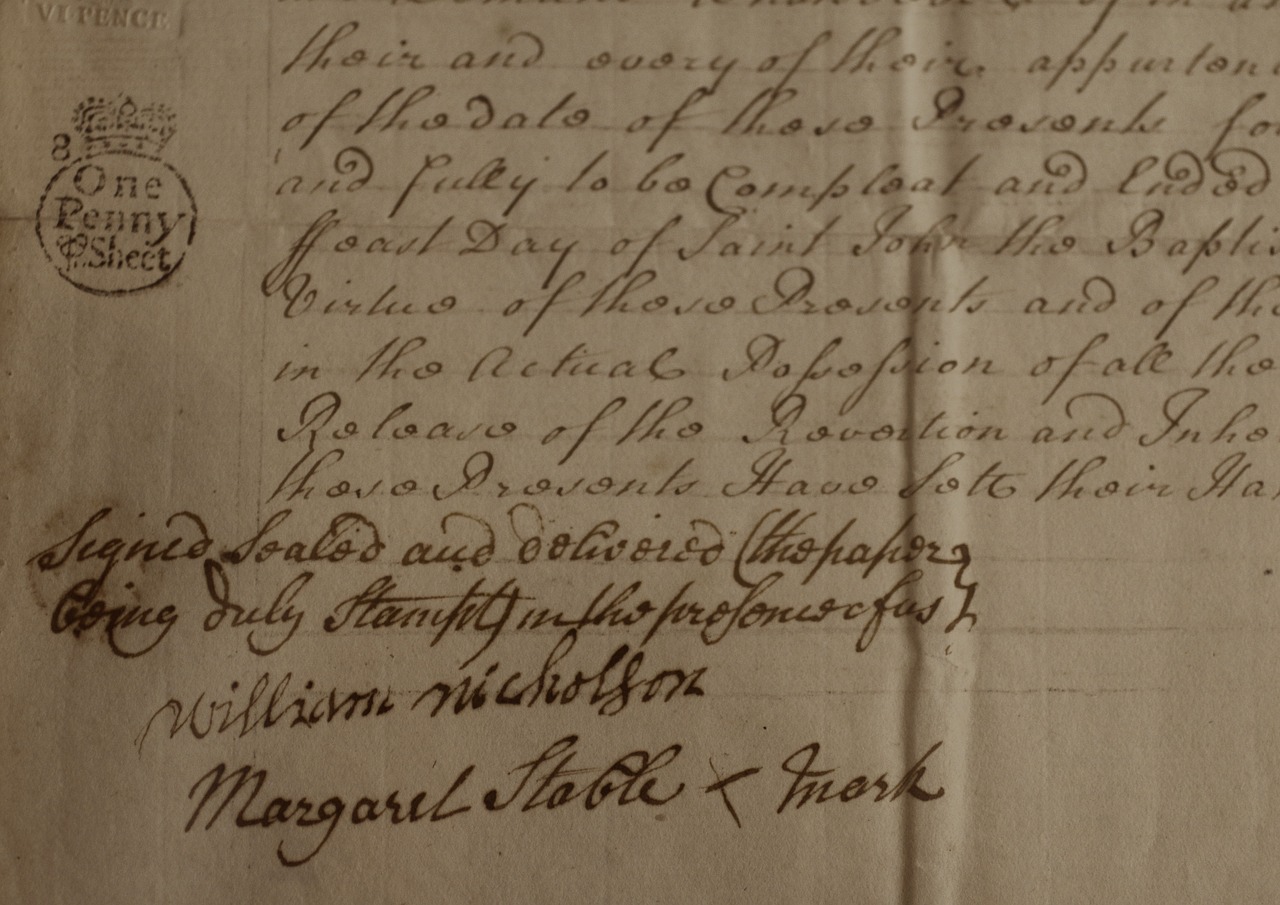 VI PENCE
their and every of their appurten
of the date of these Presents fo
and fully to be Compleat and Ended
ffeast Day of Saint John the Baptis
Virtue of these Presents and of the
in the Actual Possession of all the
Release of the Revertion and Inhe
these Presents Have Sett their Han
8
One
Penny
P Sheet
Signed Sealed and delivered (the paper
being duly Stampt) in the presence of us
William Nicholson
Margaret Stable × Mark